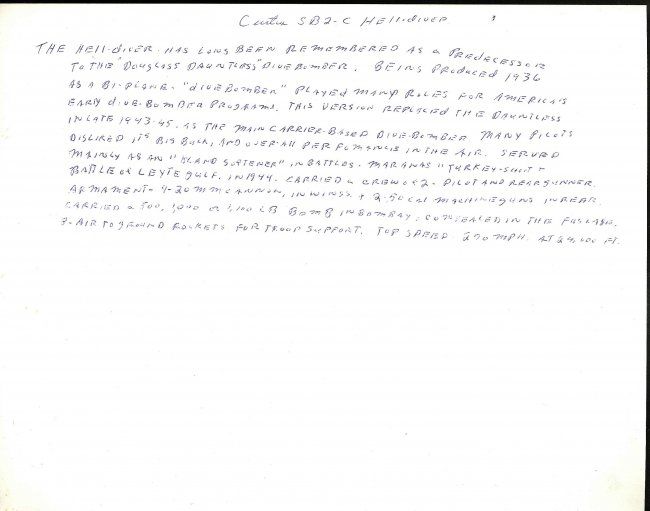 Curtiss SB2-C Hell-diver
THE HELL-DIVER HAS LONG BEEN REMEMBERED AS A PREDECESSOR
TO THE "DOUGLASS DAUNTLESS" DIVE BOMBER. BEING PRODUCED 1936
AS A BI-PLANE. "DIVE BOMBER" PLAYED MANY ROLES FOR AMERICA'S
EARLY DIVE-BOMBER PROGRAMS. THIS VERSION REPLACED THE DAUNTLESS
IN LATE 1943-45. AS THE MAIN CARRIER-BASED DIVE-BOMBER MANY PILOTS
DISLIKED ITS BIG BULK, AND OVER-ALL PERFOMANCE IN THE AIR. SERVED
MAINLY AS AN "ISLAND SOFTENER" IN BATTLES. MARANAS "TURKEY-SHOOT"
BATTLE OF LEYTE GULF. IN 1944. CARRIED A CREW OF 2. PILOT AND REAR GUNNER.
ARMAMENT- 4-20 MM CANNON, IN WINGS. + 2-.50 CAL MACHINE GUNS IN REAR.
CARRIED A 500, 1,000 OR LB BOMB IN BOMBAY. CONCEALED IN THE FUSLAGE.
AIR TO GROUND ROCKETS FOR TROOP SUPPORT. TOP SPEED. 270 MPH. AT FT.